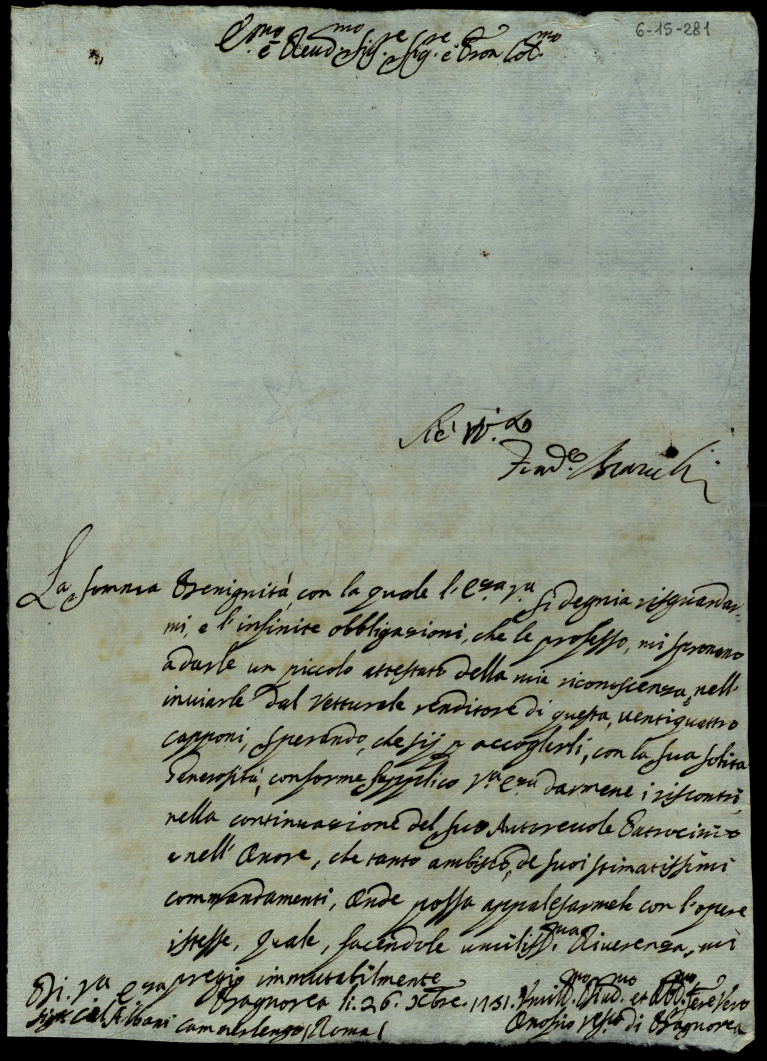 6-15-281
E.mo e Reud.mo Sig.re Sig.re e Pron Col.mo
La somma Benignità, con la quale l'E.za V.ra si degnia risguardar-
mi, e l'infinite obbligazioni, che le professo, mi spronano
a darle un piccolo attestato della mia riconoscenza, nell'
inviarle dal Vetturale renditore di questa, ventiquattro
capponi, sperando, che sij p accoglierli, con la sua solita
Generosità, conforme supplico V.ra E.za darmene i riscontri,
nella continuazione del suo Autoreuole Patrocinio
e nell'Onore, che tanto ambisco, de suoi stimatissimi
commandamenti, Onde possa appalesarmele con l'opere
istesse, quale, facendole umiliss.ma Riuerenza, mi
pregio immutabilmente
Di V.ra E.za Bagnorea li 26. Xbre. 1731. Umiliss.mo Deuot.mo et Obb.mo Ser.re Vero
Sig.r Card. Albani Camarlengo (Roma) Onofrio Vesc.o di Bagnorea